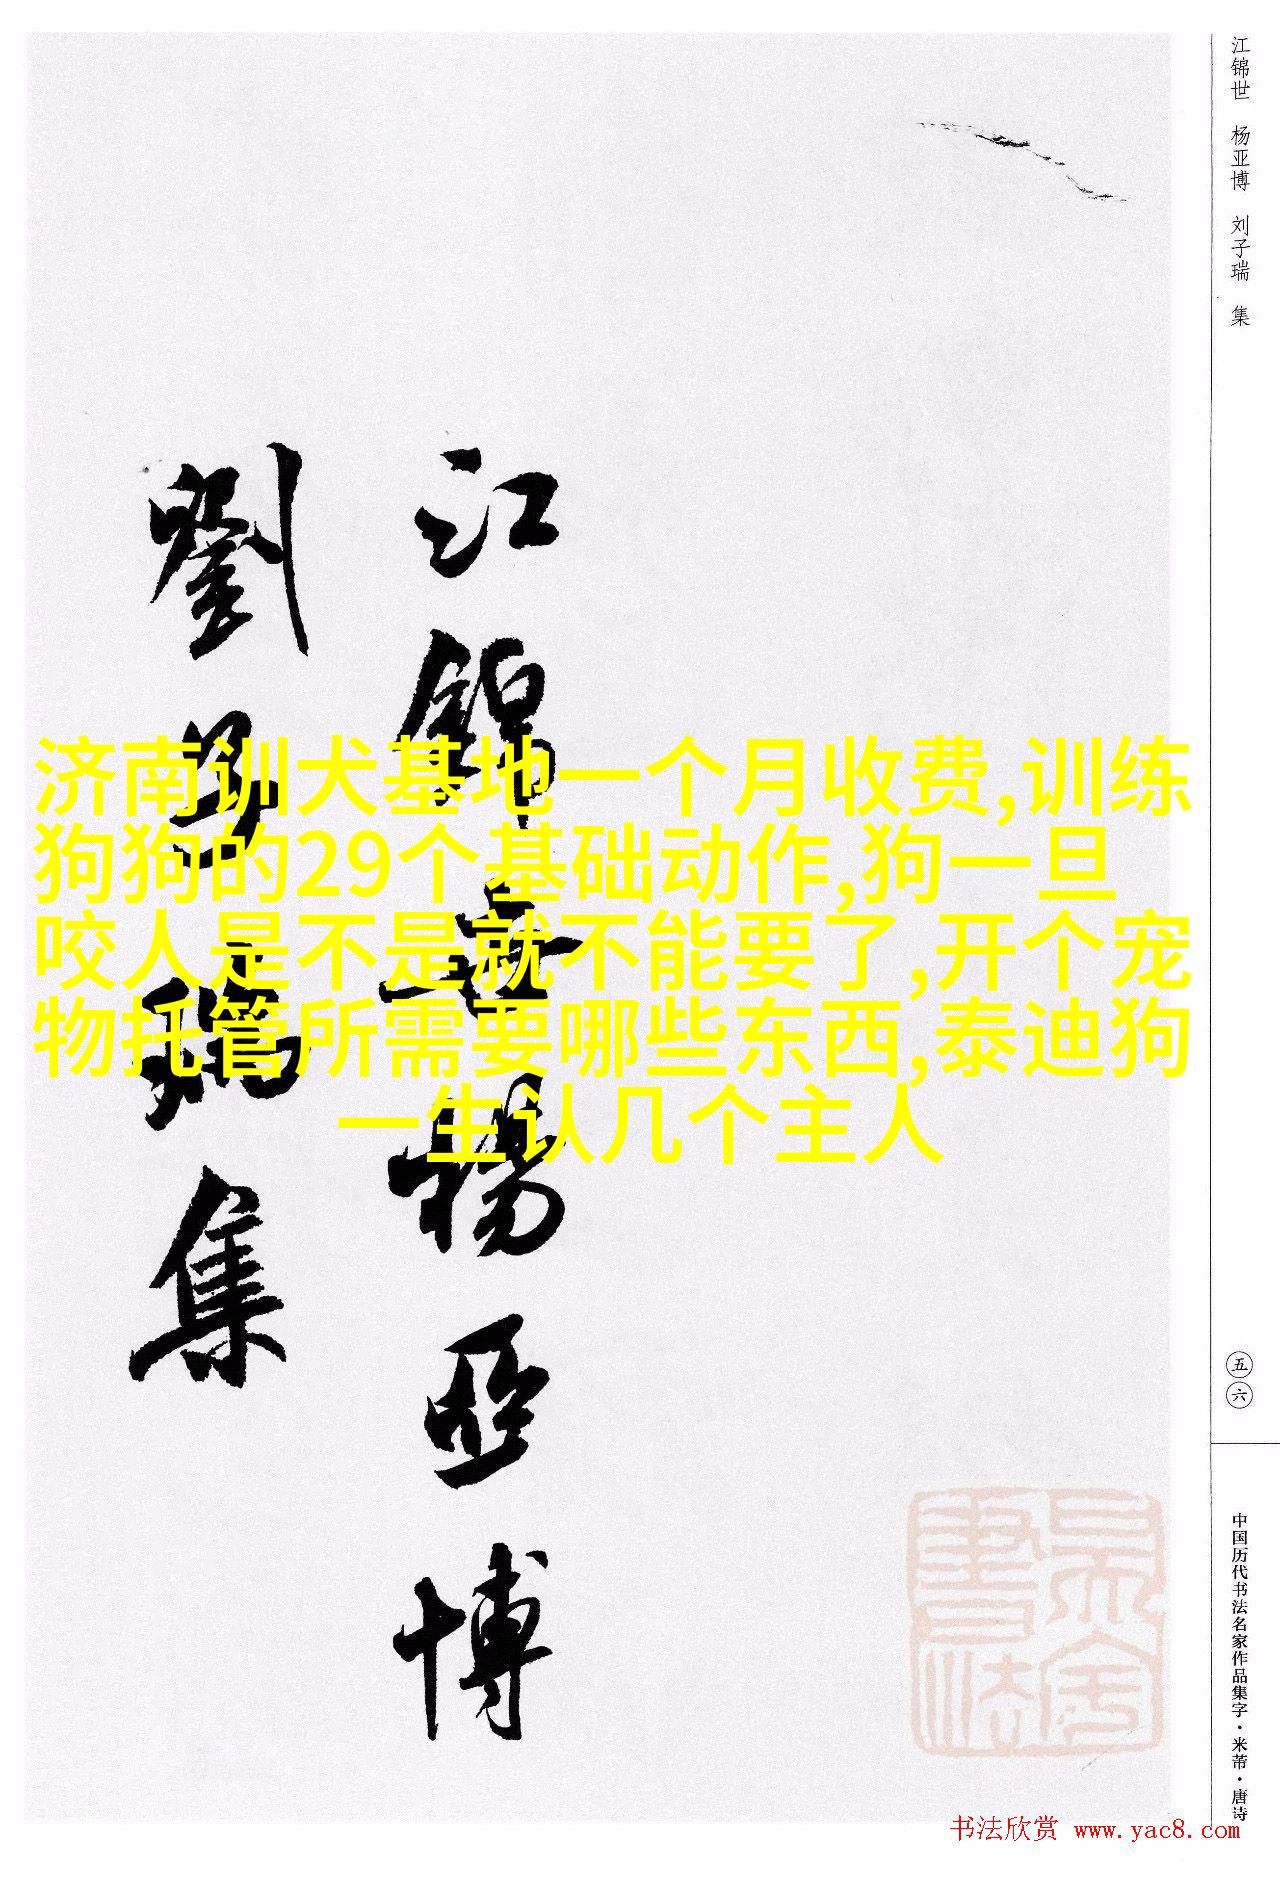 江锦世 杨亚博 刘子瑞 集
江錦世楊亞博
劉子瑞集
济南训犬基地一个月收费,训练
狗狗的29个基础动作,狗一旦
咬人是不是就不能要了,开个宠
物托管所需要哪些东西,泰迪狗
一生认几个主人
五六
中国历代书法名家作品集字·米芾·唐诗
书法欣赏 www.yac8.com